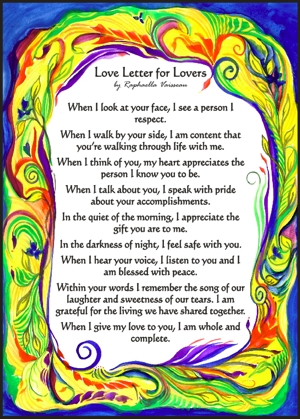 Love Letter for Lovers
by Raphaella Vaisseau
When I look at your face, I see a person I
respect.
When I walk by your side, I am content that
you're walking through life with me.
When I think of you, my heart appreciates the
person I know you to be.
When I talk about you, I speak with pride
about your accomplishments.
In the quiet of the morning, I appreciate the
gift you are to me.
In the darkness of night, I feel safe with you.
When I hear your voice, I listen to you and I
am blessed with peace.
Within your words I remember the song of our
laughter and sweetness of our tears. I am
grateful for the living we have shared together.
When I give my love to you, I am whole and
complete.